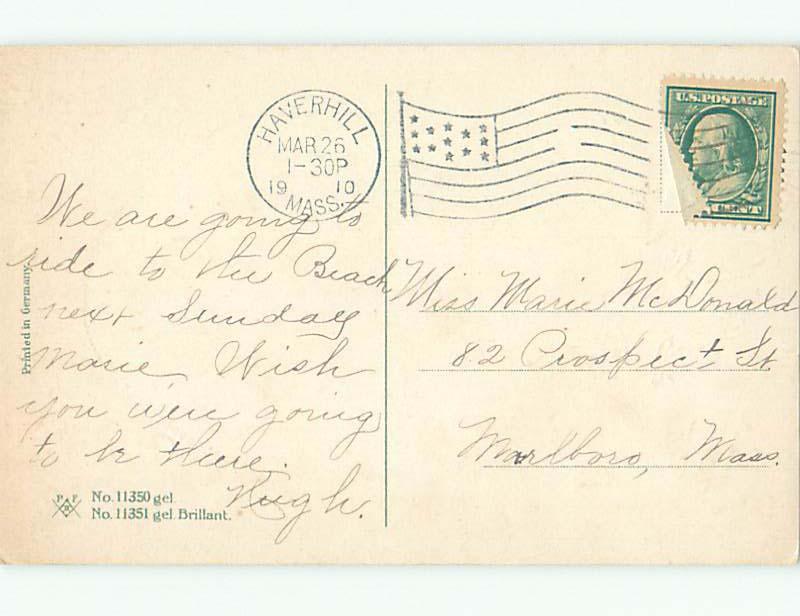 HAVERHILL
MAR 26
1-30P
19 10
MASS.
U.S. POSTAGE
We are going to
ride to the Beach
next Sunday
Marie Wish
you were going
to be there.
Hugh.
Miss Marie McDonald
82 Prospect St.
Marlboro, Mass.
Printed in Germany
P F B
No. 11350 gel.
No. 11351 gel. Brillant.